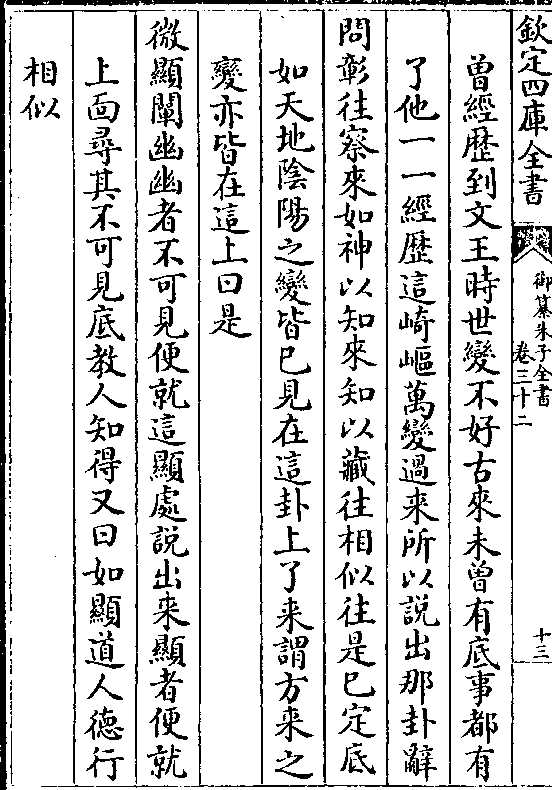 欽定四庫全書
御纂朱子全書
卷三十二
十三
曾經歴到文王時世變不好古來未曾有底事都有
了他一一經歴這崎嶇萬變過来所以説出那卦辭
問彰往察來如神以知來知以藏往相似往是已定底
如天地陰陽之變皆已見在這卦上了来謂方来之
變亦皆在這上曰是
微顯闡幽幽者不可見便就這顯處説出来顯者便就
上面尋其不可見底教人知得又曰如顯道人德行
相似